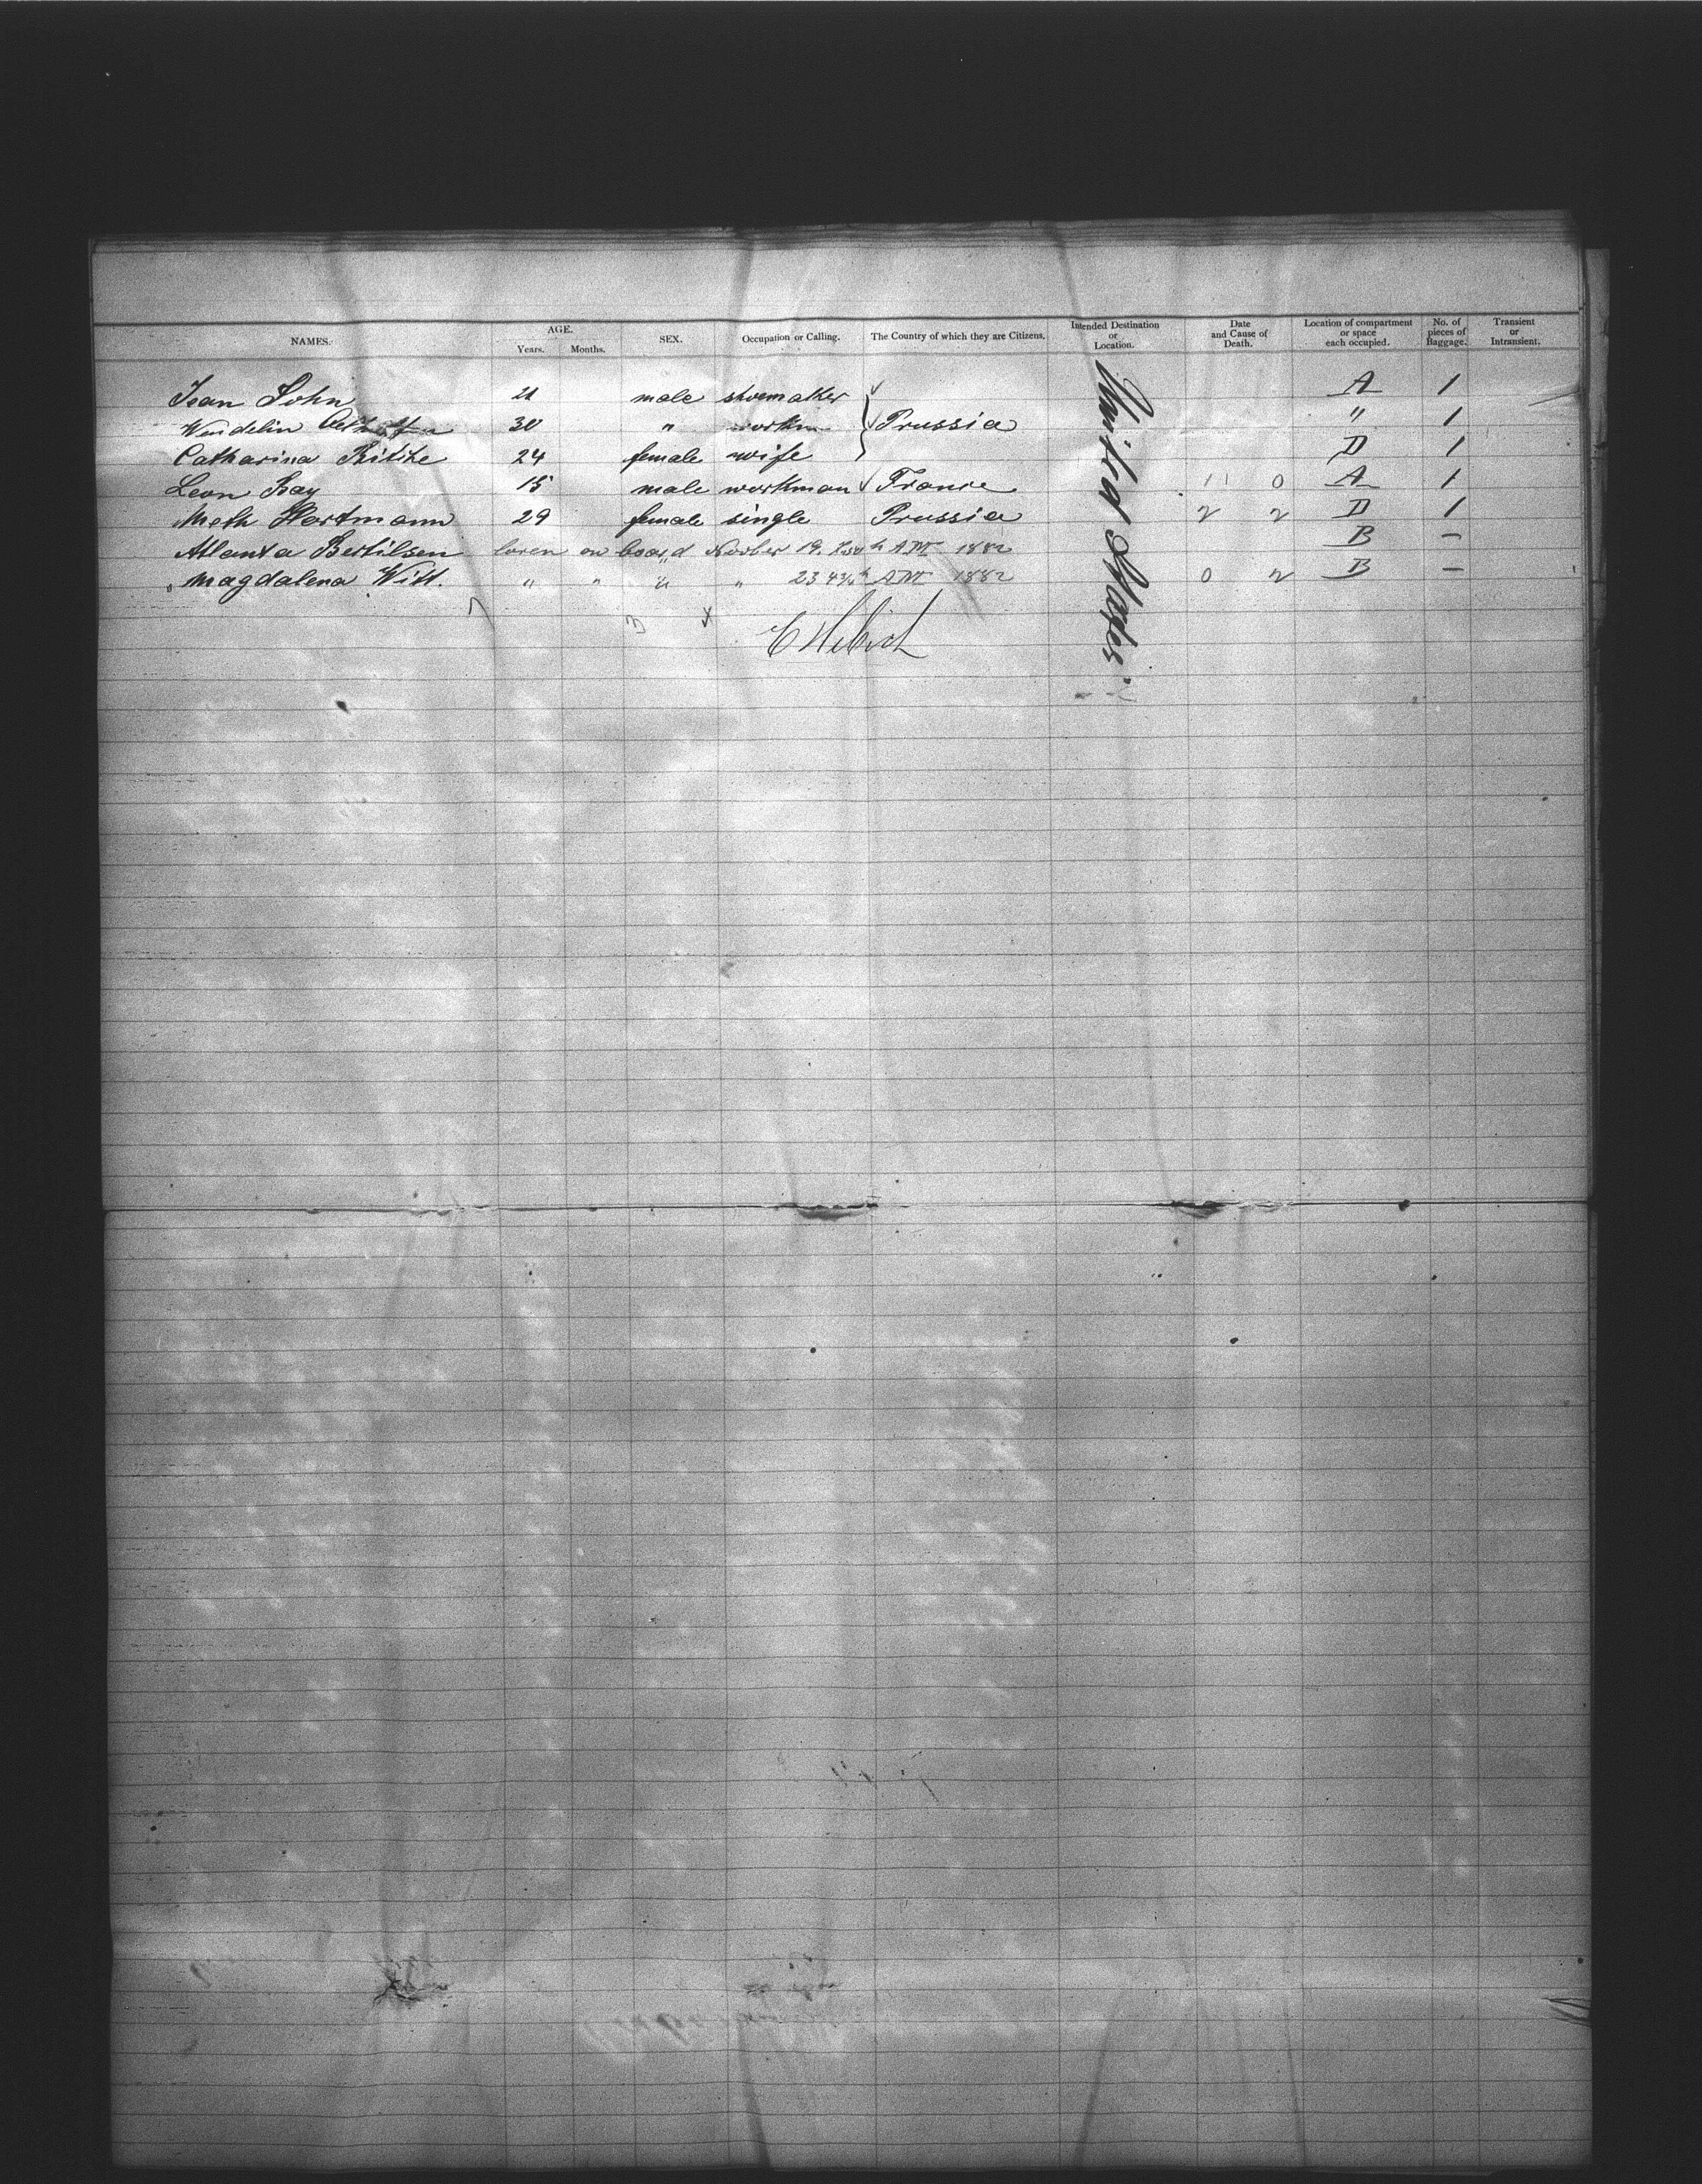 NAMES. AGE. Years. Months. SEX. Occupation or Calling. The Country of which they are Citizens. Intended Destination or Location. Date and Cause of Death. Location of compartment or space each occupied. No. of pieces of Baggage. Transient or Intransient.
Jean Sohn 21 male shoemaker A 1
Wendelin 30 " workm Prussia " 1
Catharina Ritthe 24 female wife D 1
Leon Kay 15 male workman France 11 0 A 1
Meth Hartmann 29 female single Prussia 2 2 D 1
Atlanta Bertilsen boren on board Novber 19. AM 1882 B –
" Magdalena Witt. " " " " 23 AM 1882 0 2 B –
United States
7 3 4